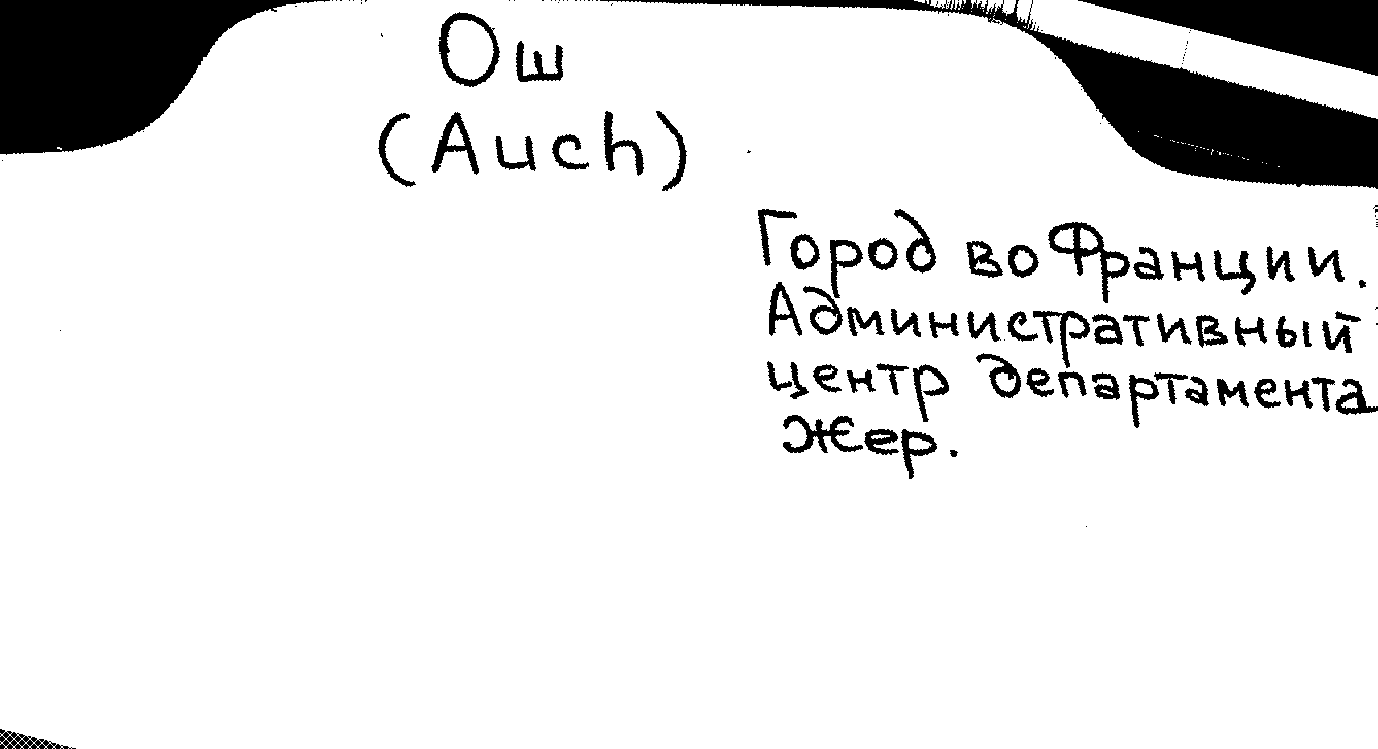 Ош
(Auch)
Город во Франции.
Административный
центр департамента
Жер.